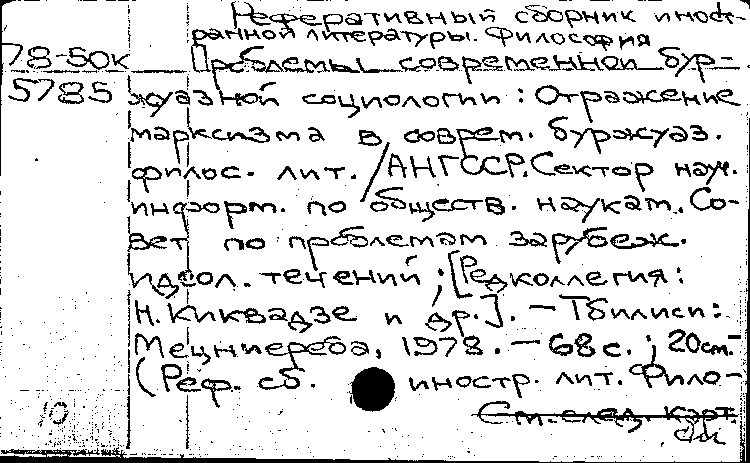 Реферативный сборник иност-
ранной литературы. Философия
78-50к Проблемы современной бур-
5785 жуазной социологии: Отражение
марксизма в соврем. буржуаз.
филос. лит. / АН ГССР. Сектор науч.
информ. по обществ. наукам. Со-
вет по проблемам зарубеж.
идеол. течений; [Редколлегия:
Н. Киквадзе и др.]. - Тбилиси:
Мецниереба, 1978. - 68 с.; 20 см. -
(Реф. сб. иностр. лит. Фило-
См. след. карт.
10